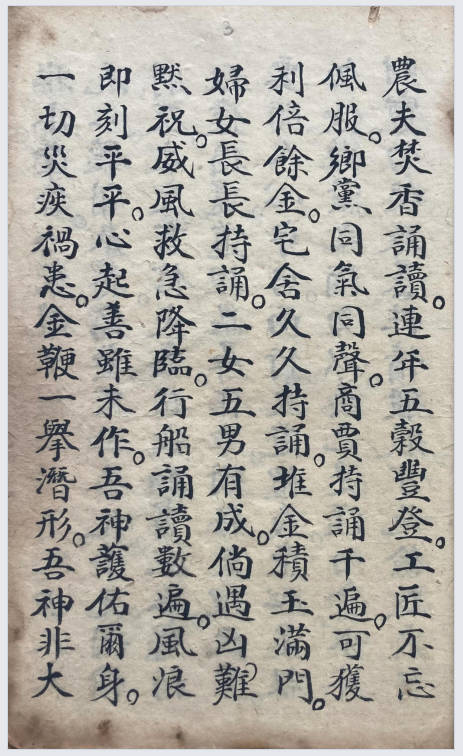 3
農夫焚香誦讀。連年五穀豐登。工匠不忘
佩服。鄉黨同氣同聲。商賈持誦千遍。可獲
利倍餘金。宅舍久久持誦。堆金積玉滿門。
婦女長長持誦。二女五男有成。倘遇凶難。
默祝。威風救急降臨。行船誦讀數遍。風浪
即刻平平。心起善雖未作。吾神護佑爾身。
一切災疾禍患。金鞭一舉潛形。吾神非大